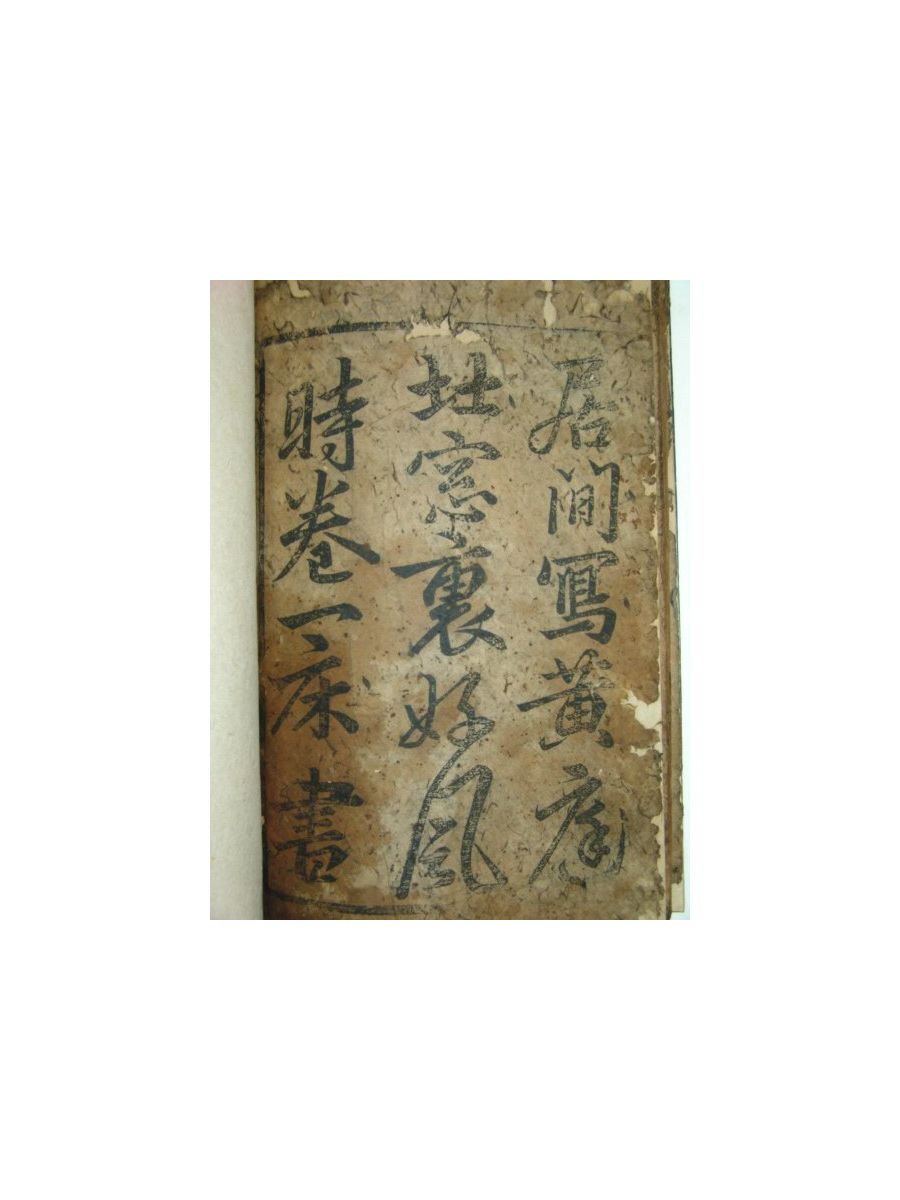 居閒寫黃庭
北窓裏好風
時卷一床書